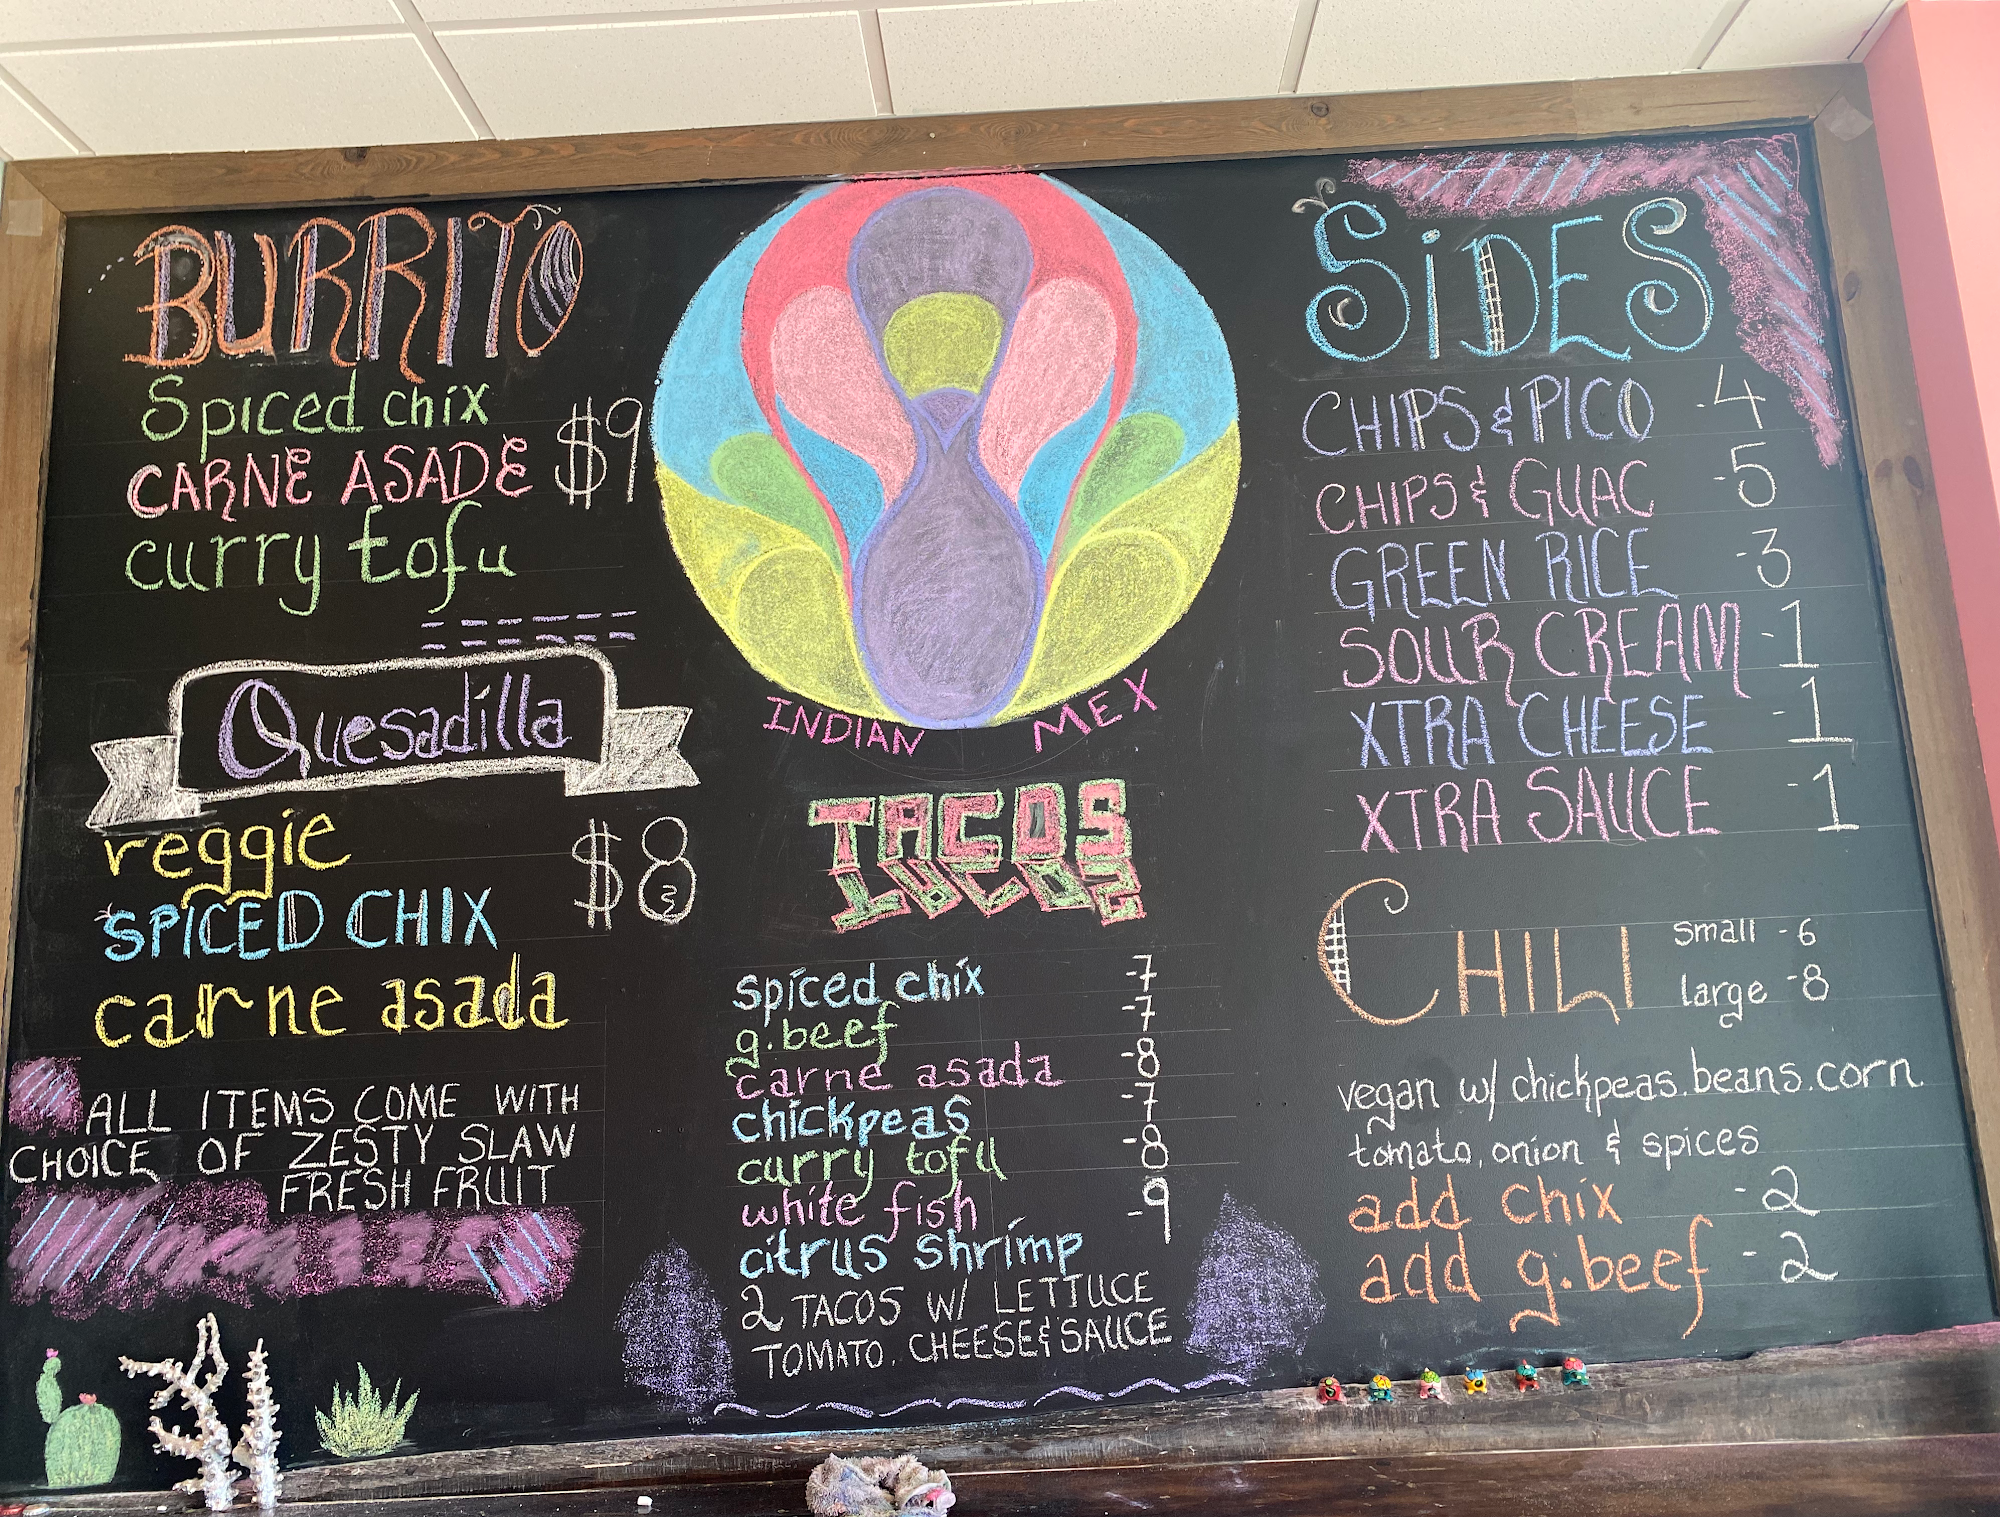 BURRITO
Spiced chix
CARNE ASADE $9
curry tofu
Quesadilla
veggie
$8
SPICED CHIX
carne asada
ALL ITEMS COME WITH
CHOICE OF ZESTY SLAW
FRESH FRUIT
INDIAN MEX
TACOS
LUCOS
spiced chix -7
g.beef -7
carne asada -8
chickpeas -7
curry tofu -8
white fish -9
citrus shrimp
2 TACOS W/ LETTUCE
TOMATO. CHEESE & SAUCE
SiDES
CHIPS & PICO -4
CHIPS & GUAC -5
GREEN RICE -3
SOUR CREAM -1
XTRA CHEESE -1
XTRA SAUCE -1
CHILI
small -6
large -8
vegan w/ chickpeas.beans.corn
tomato, onion & spices
add chix -2
add g.beef -2